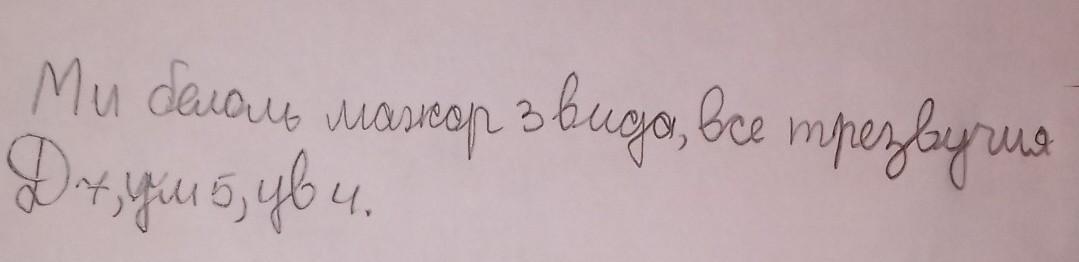 Ми бемоль мажор 3 вида, все трезвучия
Д7, ум 5, ув 4.